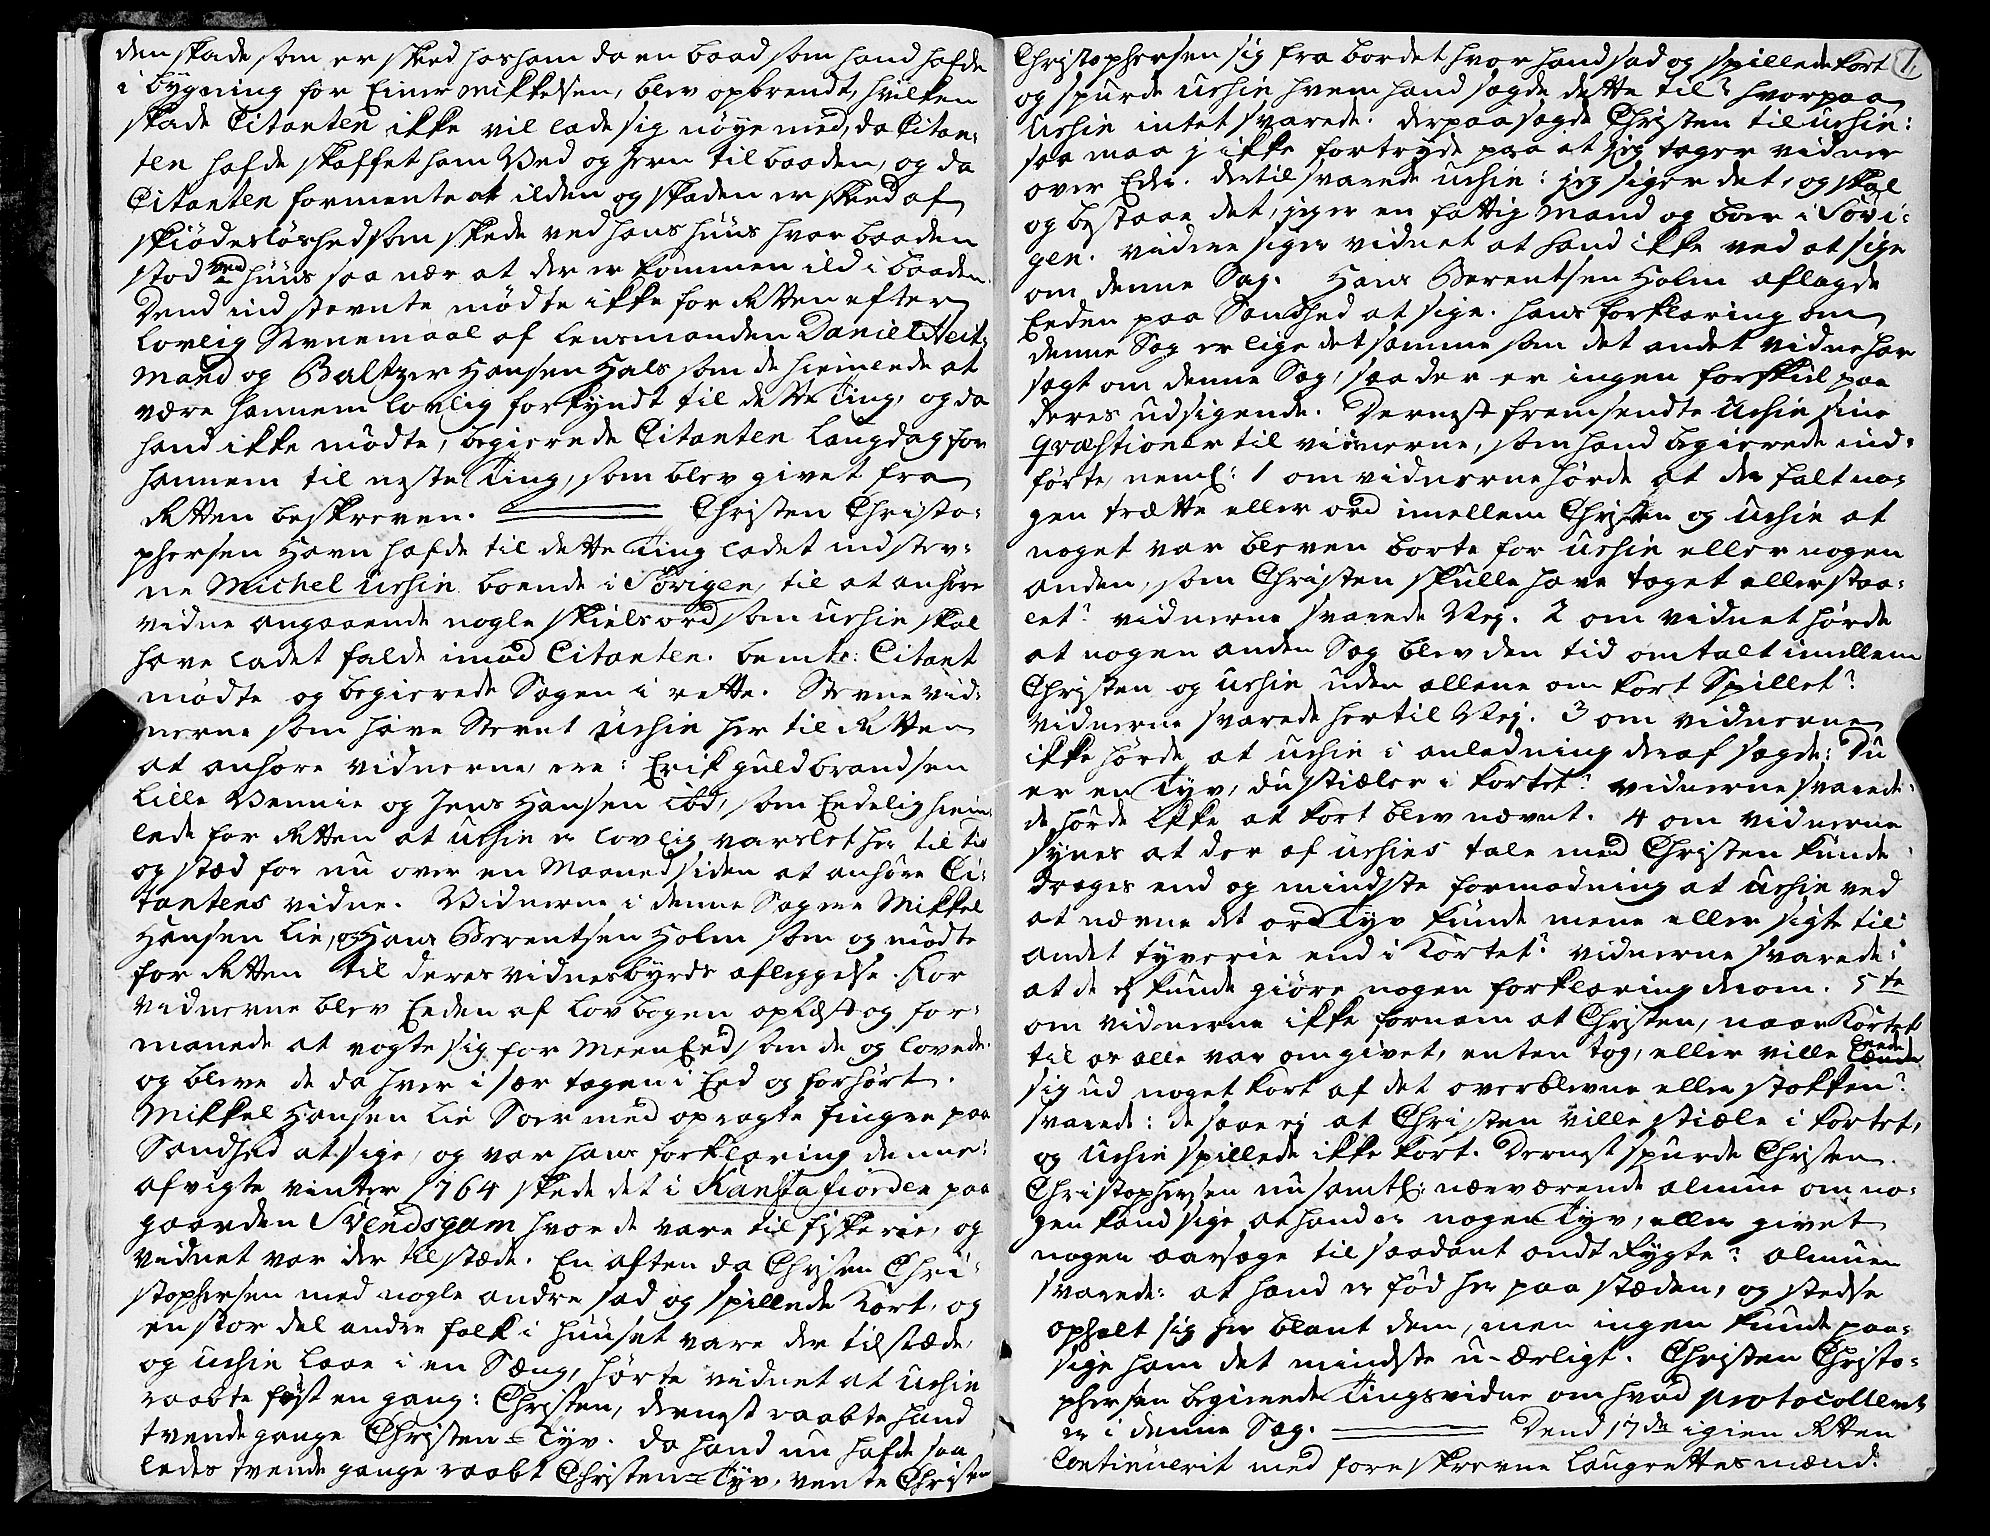 den skade som er skeed hos ham da en baad som hand hafde
i bygning for Einer Mikkelsen, blev opbrendt, hvilken
skade Citanten ikke vil lade sig nøye med, da Citan-
ten hafde skaffet ham Ved og Jern til baaden, og da
Citanten formente at ilden og skaden er skeed af
skiødesløshed som skede ved hans huus hvor baaden
stod ved huus saa nær at der er kommen ild i baaden.
Dend indstevnte mødte ikke for Retten efter
lovlig Stevnemaal af lensmanden Daniel Heit-
mand og Baltzer Hansen Hals som de hiemlede at
være hannem lovlig forkyndt til dette Ting, og da
hand ikke mødte, begierede Citanten Laugdag for
hannem til neste Ting, som blev givet fra
Retten beskreven. Christen Christo-
phersen Havn hafde til dette Ting ladet indstev-
ne Michel Urhin boende i Sörigen, til at anhöre
vidne angaaende nogle skielsord som Urhin skal
have ladet falde imod Citanten. bemte: Citant
mödte og begierede Sagen i rette. Stevne vid-
nerne som have Stevnt Urhin her til Retten
at anhøre vidnerne, ere: Erik Guldbrandsen
Lille Vennie og Jens Hansen ibd, som Eedelig hiem-
lede for Retten at Urhin er lovlig varslet her til tid
og stæd for nu over en Maaned siden at anhöre Ci-
tantens vidne. Vidnerne i denne Sag ere Mikkel
Hansen Lie, og Hans Berentsen Holm som og mödte
for Retten til deres vidnesbyrds afleggelse. For
vidnerne blev Eeden af Lovbogen oplæst og for-
manede at vogte sig for MeenEed som de og lovede.
og bleve de da hver i sær tagen i Eed og forhört.
Mikkel Hansen Lie Soer med opragte fingre paa
Sandhed at sige, og var hans forklaring denne:
afvigte vinter 1764 skede det i Kanstafiorden paa
gaarden Svendsgam hvor de vare til fiskerie, og
vidnet var der tilstæde. En aften da Christen Chri-
stophersen med nogle andre sad og spillede Kort, og
en stor del andre folk i huuset vare der tilstæde,
og Urhin laae i en Sæng, hørte vidnet at Urhin
raabte først en gang: Christen, dernest raabte hand
tvende gange Christen Tyv. da hand nu hafde saa-
ledes tvende gange raabt Christen Tyv, vente Christen
Christophersen sig fra bordet hvor hand sad og spillede kort
og spurde Urhin hvem hand sagde dette til? hvorpaa
Urhin intet svarede. derpaa sagde Christen til Urhin:
saa maa j ikke fortryde paa at jeg tager vidner
over Eder. dertil svarede Urhin: jeg siger det, og skal
og bestaae det, jeg er en fattig mand og boer i Sövi-
gen. videre siger vidnet at hand ikke ved at sige
om denne Sag. Hans Berentsen Holm aflagde
Eeden paa Sandhed at sige. hans forklaring om
denne Sag er lige det samme som det andet vidne har
sagt om denne Sag, saa der er ingen forskiel paa
deres udsigende. Dernest fremsendte Urhin sine
Qvæstioner til vidnerne, som hand begierede ind-
førte, neml: 1 om vidnerne hörde at der falt no-
gen trætte eller ord imellem Christen og Urhin at
noget var bleven borte for Urhin eller nogen
anden, som Christen skulle have taget eller staa-
let? vidnerne svarede Nej. 2 om vidnet hörde
at nogen anden Sag blev den tid omtalt imellem
Christen og Urhin uden allene om kort Spillet?
vidnerne svarede hertil Nej. 3 om vidnerne
ikke hörde at Urhin i anledning deraf sagde: Du
er en Tyv, du stiæler i kortet? vidnerne svarede:
de hörde ikke at kort blev nævnt. 4 om vidnerne
synes at der af Urhins tale med Christen kunde
drages end og mindste formodning at Urhin ved
at nævne det ord Tyv kunde mene eller sigte til
andet tyverie end i Kortet? vidnerne svarede:
at de ej kunde giöre nogen forklaring derom. 5te
om vidnerne ikke fornam at Christen, naar Kortet
til os alle var omgivet, enten tog, eller ville
sig ud noget kort af det overblevne eller stokken?
svarede: de saae ej at Christen ville stiæle i kortet,
og Urhin spillede ikke kort. Dernest spurde Christen
Christophersen nu samtl: nærværende almue om no-
gen kand sige at hand er nogen Tyv, eller givet
nogen aarsage til saadant ondt Rygte? almuen
svarede: at hand er fød her paa stæden, og stedse
opholt sig her blant dem, men ingen kunde paa-
sige ham det mindste u-ærligt. Christen Christo-
phersen begierede Tingsvidne om hvad protocolleret
er i denne Sag. Dend 17de igien Retten
Continuerit med foreskrevne Laugrettes mænd.